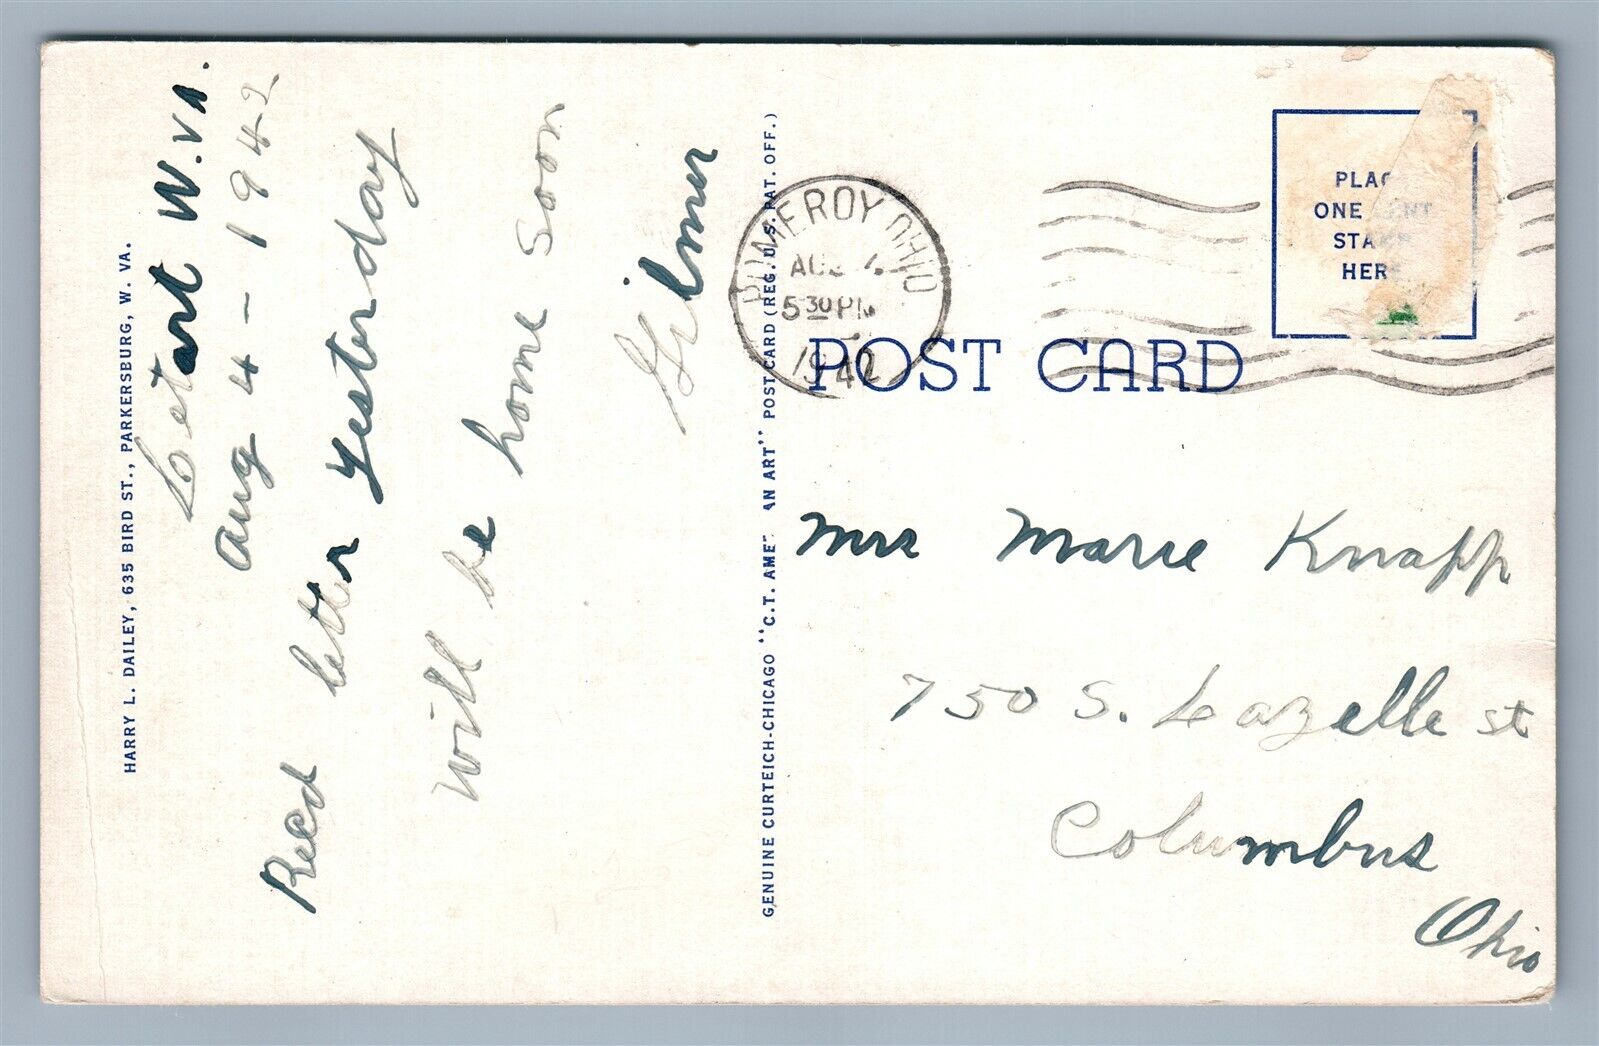 HARRY L. DAILEY, 635 BIRD ST., PARKERSBURG, W. VA.
Letart W.Va.
Aug 4 - 1942
Recd letter yesterday
Will be home soon
Gilmer
GENUINE CURTEICH-CHICAGO "C.T. AMER AN ART" POST CARD (REG. U.S. PAT. OFF.)
POMEROY OHIO
AUG 4
5 30 PM
1942
PLAC
ONE CENT
STAMP
HERE
POST CARD
Mrs Marie Knapp
750 S. Lazelle St
Columbus
Ohio